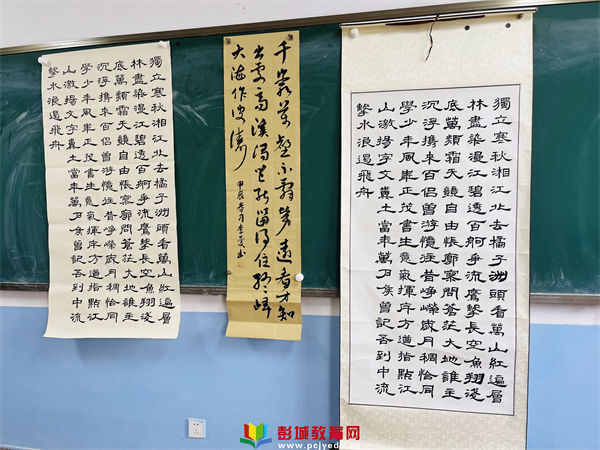 獨立寒秋湘江北去橘子洲頭看萬山紅遍層
林盡染漫江碧透百舸爭流鷹擊長空魚翔淺
底萬類霜天競自由悵寥廓問蒼茫大地誰主
沉浮攜來百侶曾游憶往昔崢嶸歲月稠恰同
學少年風華正茂書生意氣揮斥方遒指點江
山激揚文字糞土當年萬戶侯曾記否到中流
擊水浪遏飛舟
千巖萬壑不辭勞遠看方知
出處高溪澗豈能留得住終歸
大海作波濤
甲辰
獨立寒秋湘江北去橘子洲頭看萬山紅遍層
林盡染漫江碧透百舸爭流鷹擊長空魚翔淺
底萬類霜天競自由悵寥廓問蒼茫大地誰主
沉浮攜來百侶曾游憶往昔崢嶸歲月稠恰同
學少年風華正茂書生意氣揮斥方遒指點江
山激揚文字糞土當年萬戶侯曾記否到中流
擊水浪遏飛舟
彭城教育网
www.pcjyedu.cn